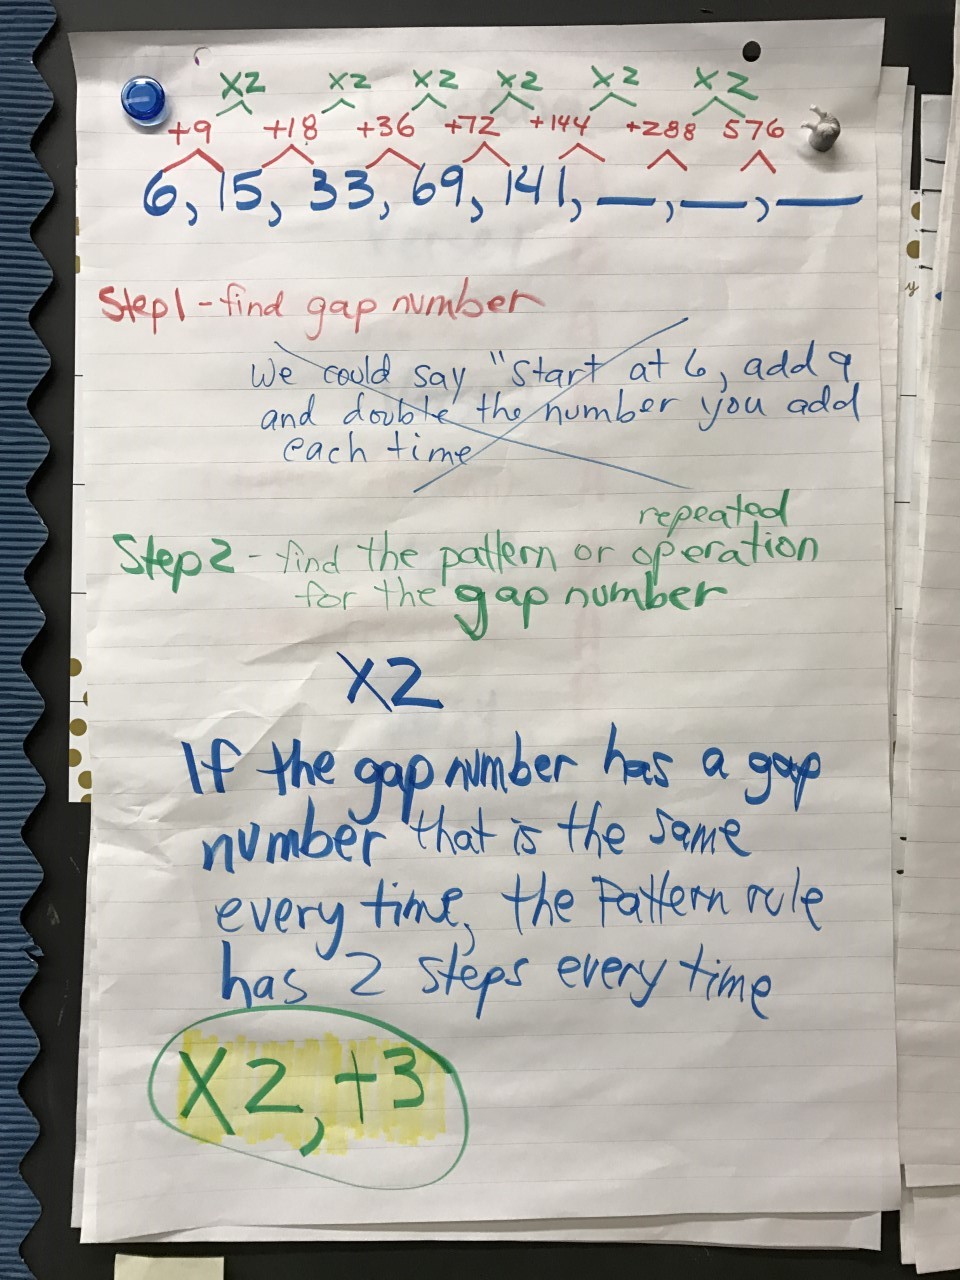 X2 X2 X2 X2 X2 X2
+9 +18 +36 +72 +144 +288 576
6, 15, 33, 69, 141, __, __, __
Step 1 - find gap number
We could say "Start at 6, add 9
and double the number you add
each time
repeated
Step 2 - find the pattern or operation
for the gap number
X2
If the gap number has a gap
number that is the same
every time, the Pattern rule
has 2 steps every time
X2, +3